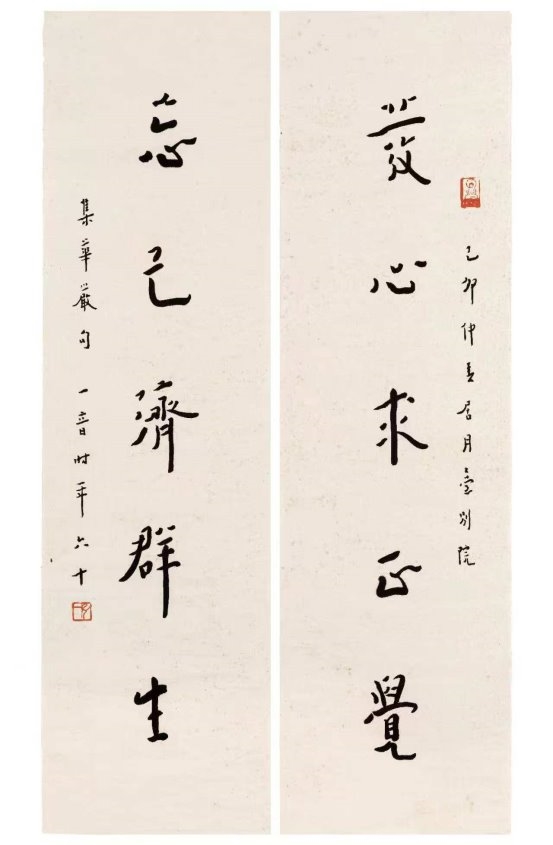 己卯仲春居月臺別院
發心求正覺
忘己濟群生
集華嚴句 一音時年六十